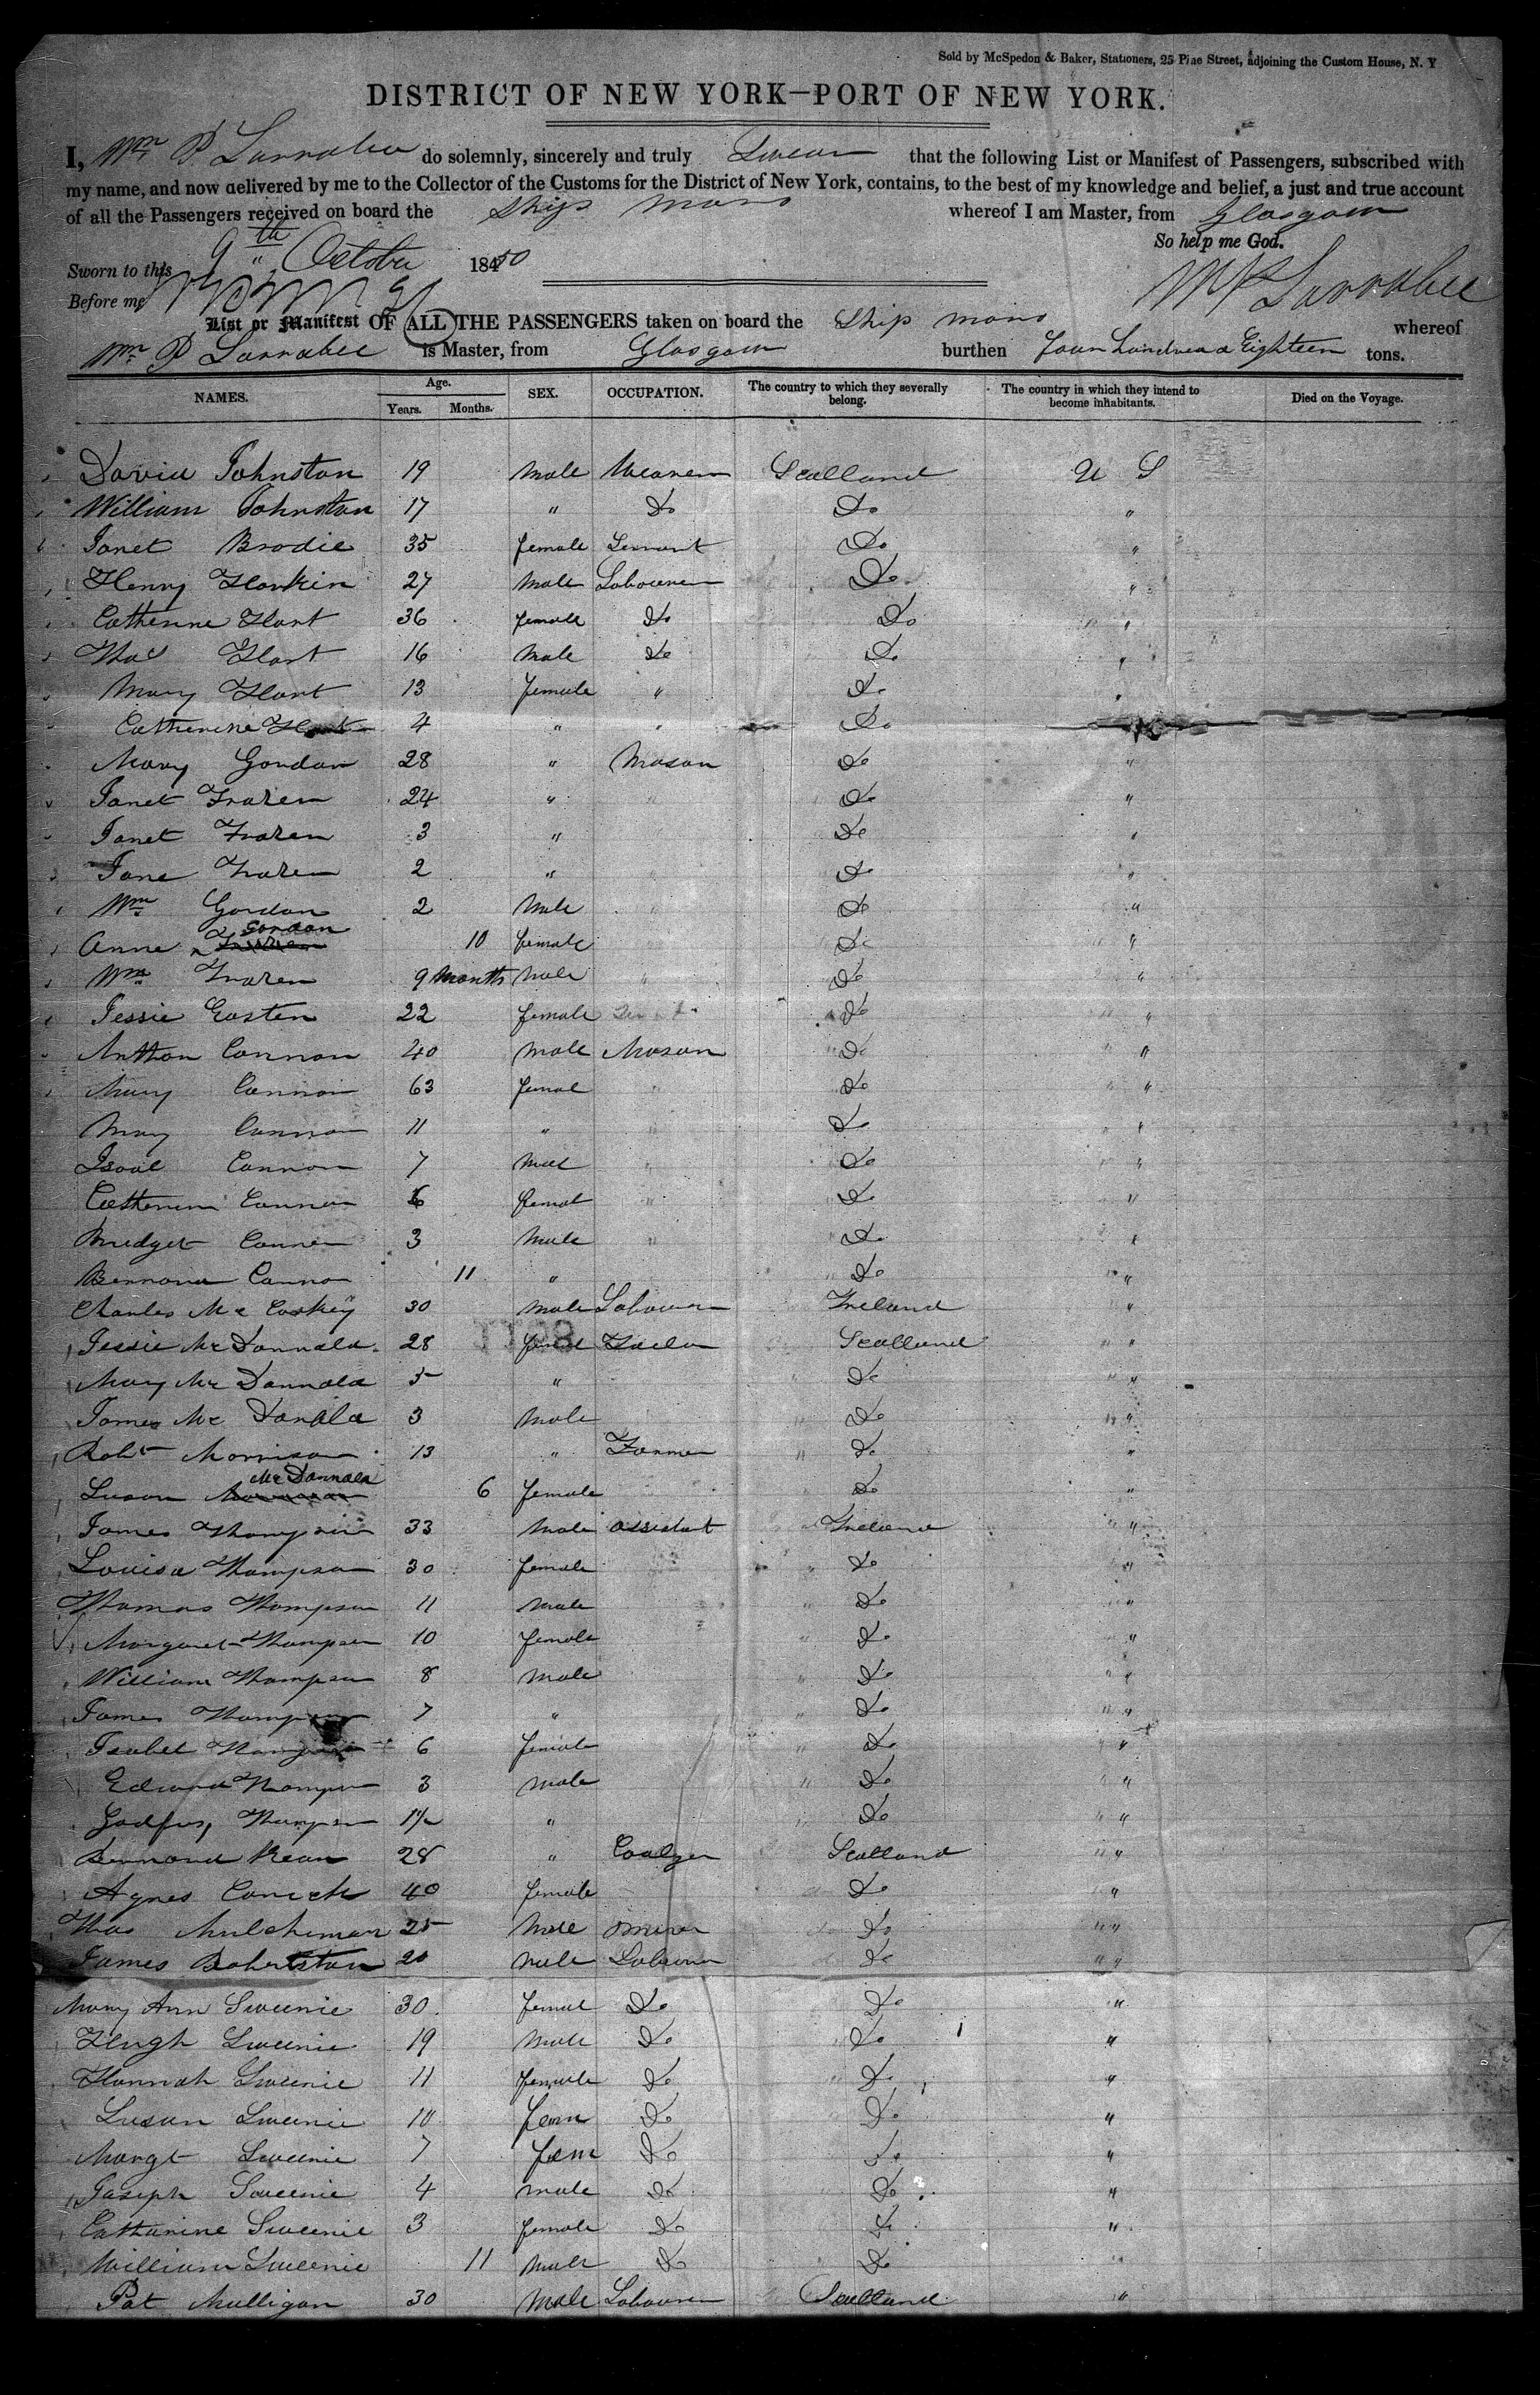 Sold by McSpedon & Baker, Stationers, 25 Pine Street, adjoining the Custom House, N. Y
DISTRICT OF NEW YORK—PORT OF NEW YORK.
I, Wm P Larrabee do solemnly, sincerely and truly Swear that the following List or Manifest of Passengers, subscribed with
my name, and now delivered by me to the Collector of the Customs for the District of New York, contains, to the best of my knowledge and belief, a just and true account
of all the Passengers received on board the Ship Mars whereof I am Master, from Glasgow
So help me God.
Sworn to this 9th October 18450
Before me
Wm P Larrabee
List or Manifest OF ALL THE PASSENGERS taken on board the Ship Mars whereof
Wm P Larrabee is Master, from Glasgow burthen Four hundred & Eighteen tons.
NAMES. Age. Years. Months. SEX. OCCUPATION. The country to which they severally belong. The country in which they intend to become inhabitants. Died on the Voyage.
David Johnston 19 Male Weaver Scotland U S
William Johnston 17 " Do Do "
Janet Brodie 35 female Servant Do "
Henry Harkin 27 Male Labourer Do "
Catherine Hart 36 female Do Do "
Thos Hart 16 Male Do Do "
Mary Hart 13 female " Do "
Catherine Hart 4 " " Do
Mary Gordon 28 " Mason Do "
Janet Frazer 24 " " Do "
Janet Frazer 3 " Do "
Jane Frazer 2 " Do "
Wm Gordon 2 Male " Do "
Anne Gordon 10 female Do "
Wm Frazer 9 Months Male " Do "
Jessie Easten 22 female Do "
Anthon Cannon 40 Male Mason Do "
Mary Cannon 63 femal " Do "
Mary Cannon 11 " " Do "
Cannon 7 Mal " Do "
Catherin Cannon 6 femal " Do "
Bridget Cannon 3 Male " Do "
Bernard Cannon 11 " Do "
Charles Mc Coskey 30 Male Labourer Ireland "
Jessie Mc Donnald 28 femal Scotland "
Mary Mc Donnald 5 " Do "
James Mc Donald 3 Male Do "
Robt Morrison 13 " Farmer Do "
Susan Mc Donnald 6 female Do "
James Thompson 33 Male assistant Ireland "
Louisa Thompson 30 female Do "
Thomas Thompson 11 Male Do "
Margaret Thompson 10 female Do "
William Thompson 8 Male Do "
James Thompson 7 " Do "
Isabel Thompson 6 female Do "
Edward Thompson 3 Male Do "
Godfrey Thompson 1½ " Do "
Bernard Kean 28 " Scotland "
Agnes 40 female Do "
Thos 25 Male Miner Do "
James Robertston 20 Male Labourer Do "
Mary Ann Sweenie 30 femal Do Do "
Hugh Sweenie 19 Male Do Do "
Hannah Sweenie 11 female Do Do "
Susan Sweenie 10 fem Do Do "
Margt Sweenie 7 fem Do Do "
Joseph Sweenie 4 male Do Do "
Catharine Sweenie 3 female Do Do "
William Sweenie 11 Male Do Do "
Pat Mulligan 30 Male Labourer Scotland "